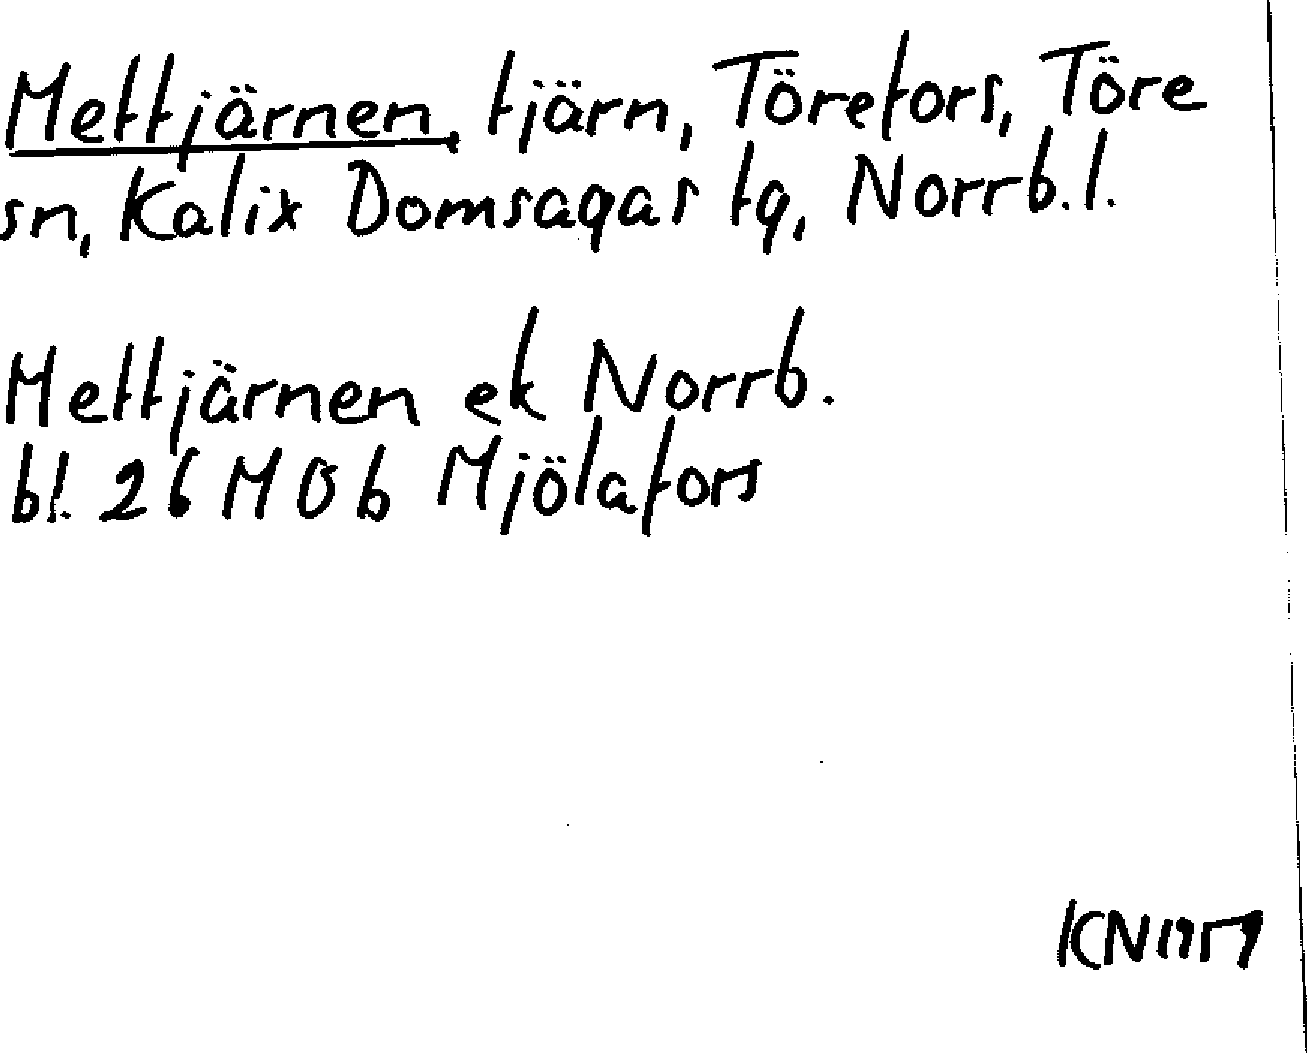 Mettjärnen, tjärn, Törefors, Töre
sn, Kalix Domsagas tg, Norrb.l.
Mettjärnen ek Norrb.
bl. 26 M Ö b Mjölafors